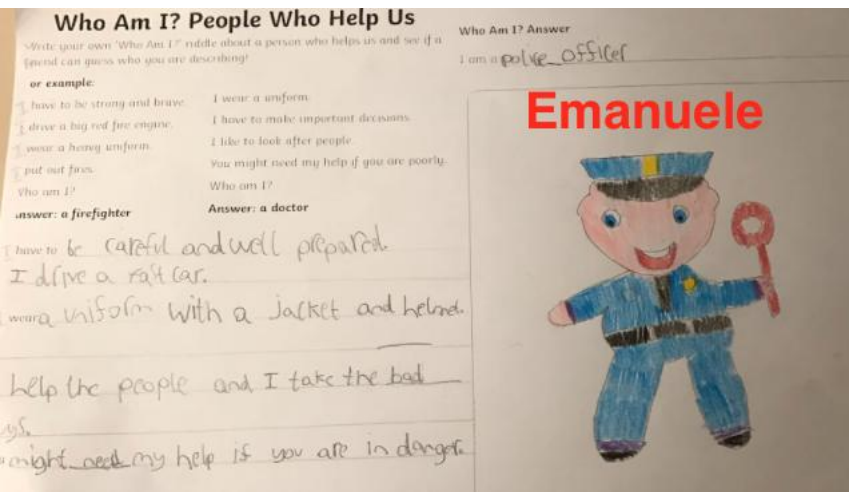 Who Am I? People Who Help Us
Write your own 'Who Am I?' riddle about a person who helps us and see if a
friend can guess who you are describing!
or example:
I have to be strong and brave.
I drive a big red fire engine.
I wear a heavy uniform.
I put out fires.
Who am I?
answer: a firefighter
I wear a uniform.
I have to make important decisions.
I like to look after people.
You might need my help if you are poorly.
Who am I?
Answer: a doctor
I have to be careful and well prepared.
I drive a fast car.
wear a uniform with a jacket and helmet.
help the people and I take the bad
ys.
might need my help if you are in danger.
Who Am I? Answer
I am a police officer
Emanuele